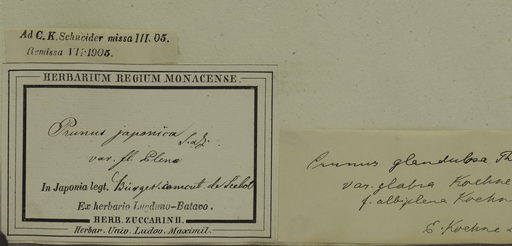 Ad C. K. Schneider missa III. 05.
Remissa VII 1905.
HERBARIUM REGIUM MONACENSE.
Prunus japonica
var. fl. pleno
In Japonia legt. Bürger, comm. de Siebold
Ex herbario Lugduno-Batavo.
HERB. ZUCCARINII.
Herbar. Univ. Ludov. Maximil.
Prunus glandulosa Th
var. glabra Koehne
f. albiplena Koehn
E. Koehne